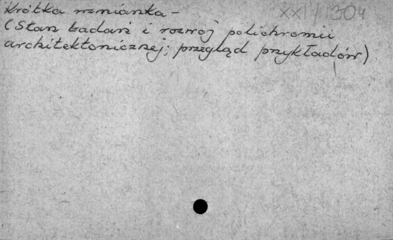 Krótka wzmianka -
XXI/1304
(Stan badań i rozwój polichromii
architektonicznej; przegląd przykładów)